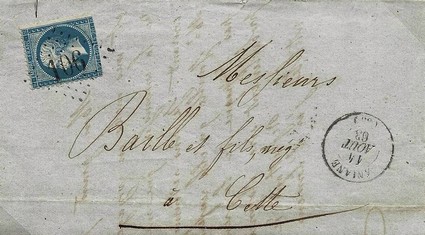 106
Messieurs
Baille et fils, neg
ANIANE
14
AOUT
63
à
Cette